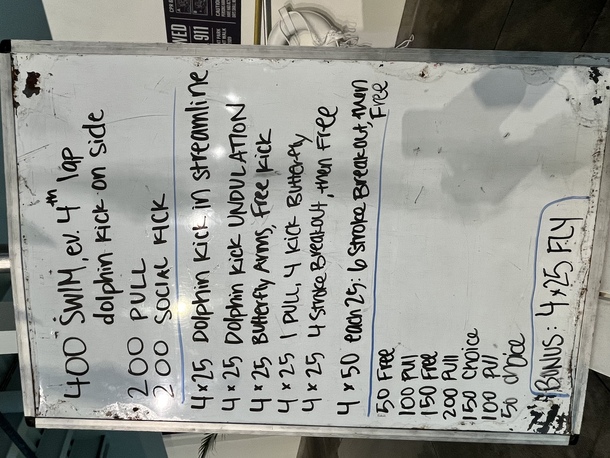 400 SWIM, ev. 4th lap
dolphin kick on side
200 PULL
200 SOCIAL KICK
4 x 25 Dolphin Kick in streamline
4 x 25 Dolphin Kick UNDULATION
4 x 25 Butterfly Arms, Free Kick
4 x 25 1 PULL, 4 KICK Butterfly
4 x 25 4 Stroke Breakout, then Free
4 x 50 each 25: 6 stroke Breakout, then
Free
50 Free
100 Pull
150 Free
200 Pull
150 Choice
100 Pull
50 choice
BONUS: 4 x 25 FLY
911